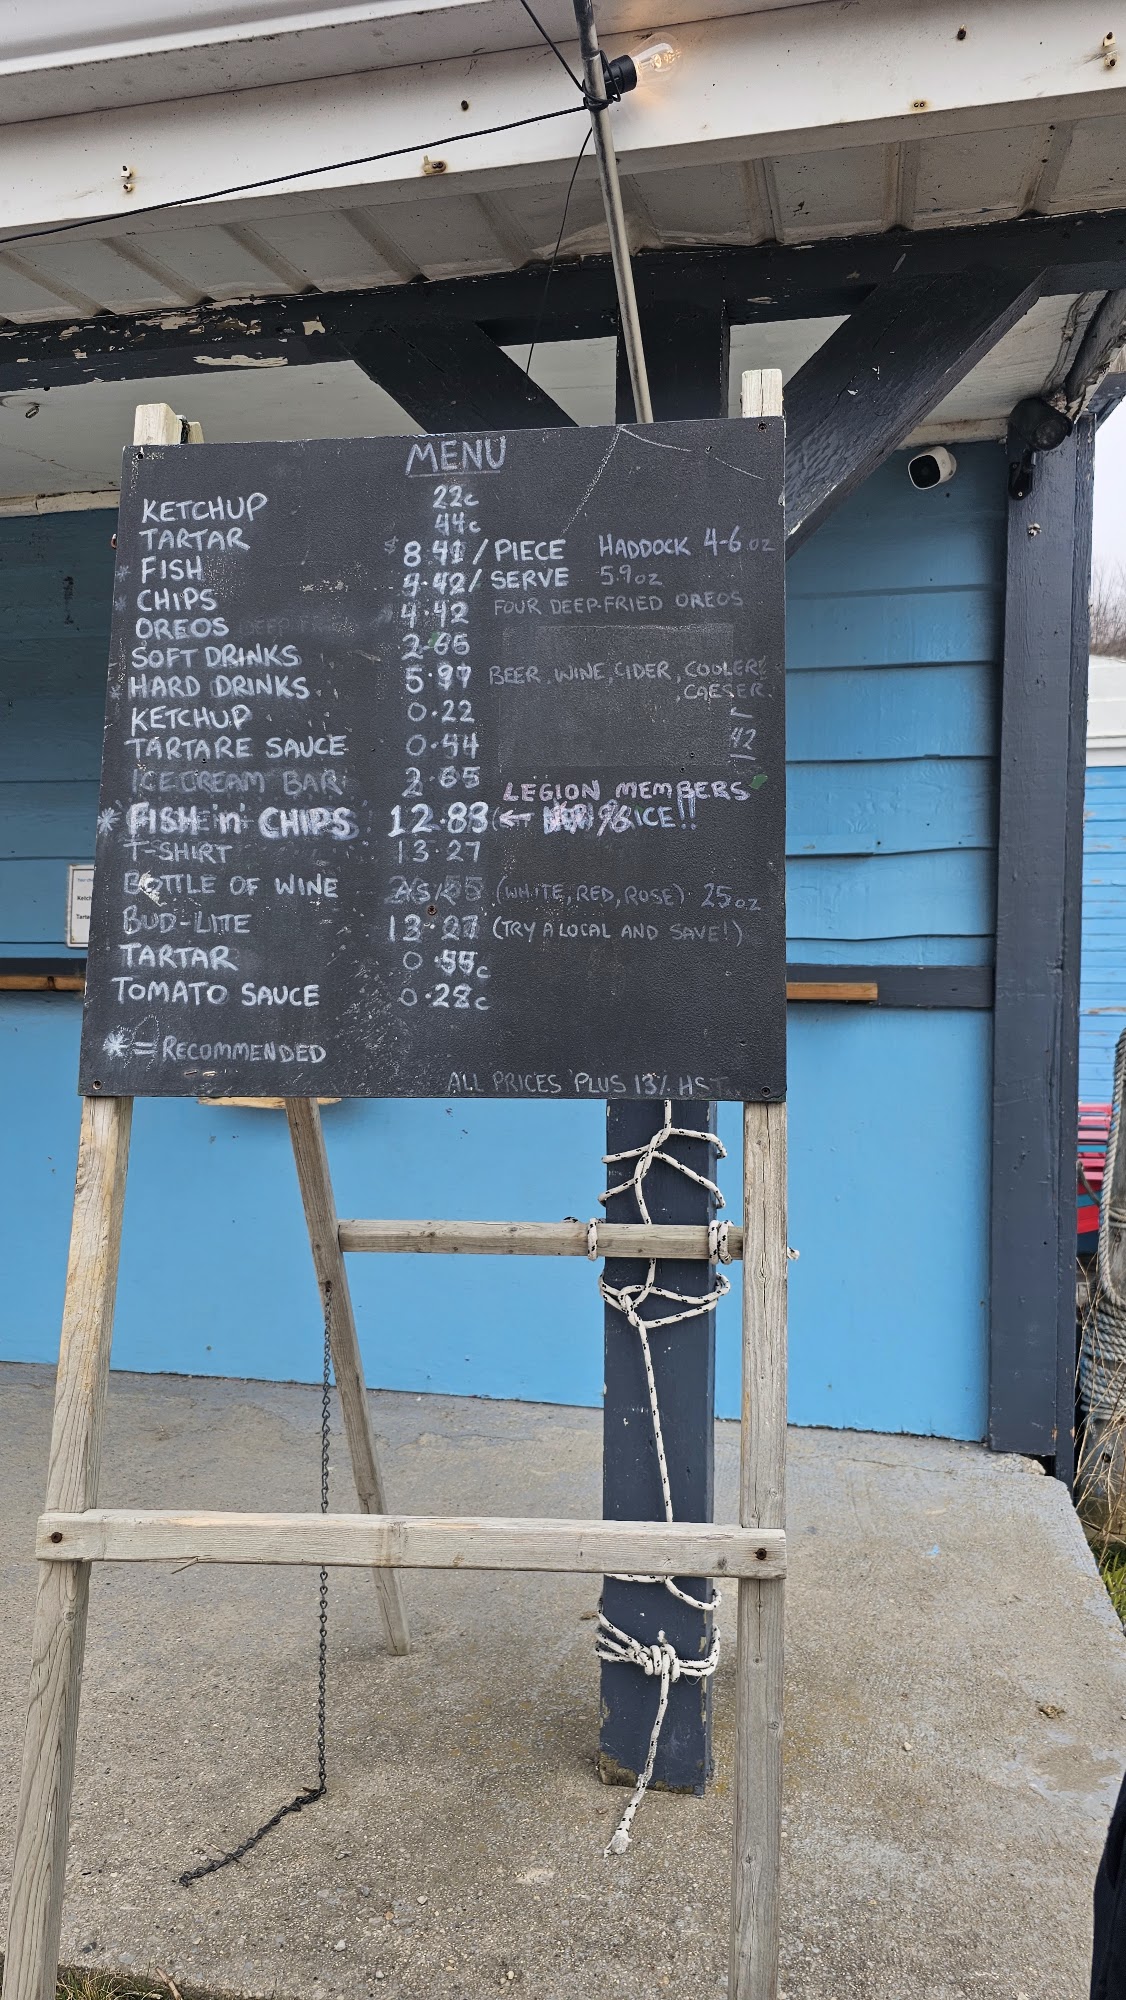 MENU
KETCHUP 22c
TARTAR 44c
* FISH $8.41 / PIECE HADDOCK 4-6 oz
* CHIPS 4.42 / SERVE 5.9 oz
OREOS 4.42 FOUR DEEP-FRIED OREOS
SOFT DRINKS 2.65
* HARD DRINKS 5.97 BEER, WINE, CIDER, COOLERS
CAESER.
KETCHUP 0.22
TARTARE SAUCE 0.44
42
ICECREAM BAR 2.65
LEGION MEMBERS
* FISH 'n' CHIPS 12.83 (←
T-SHIRT 13.27
BOTTLE OF WINE (WHITE, RED, ROSE) 25oz
BUD-LITE 13.27 (TRY A LOCAL AND SAVE!)
TARTAR 0.55c
TOMATO SAUCE 0.28c
* = RECOMMENDED
ALL PRICES PLUS 13% HST